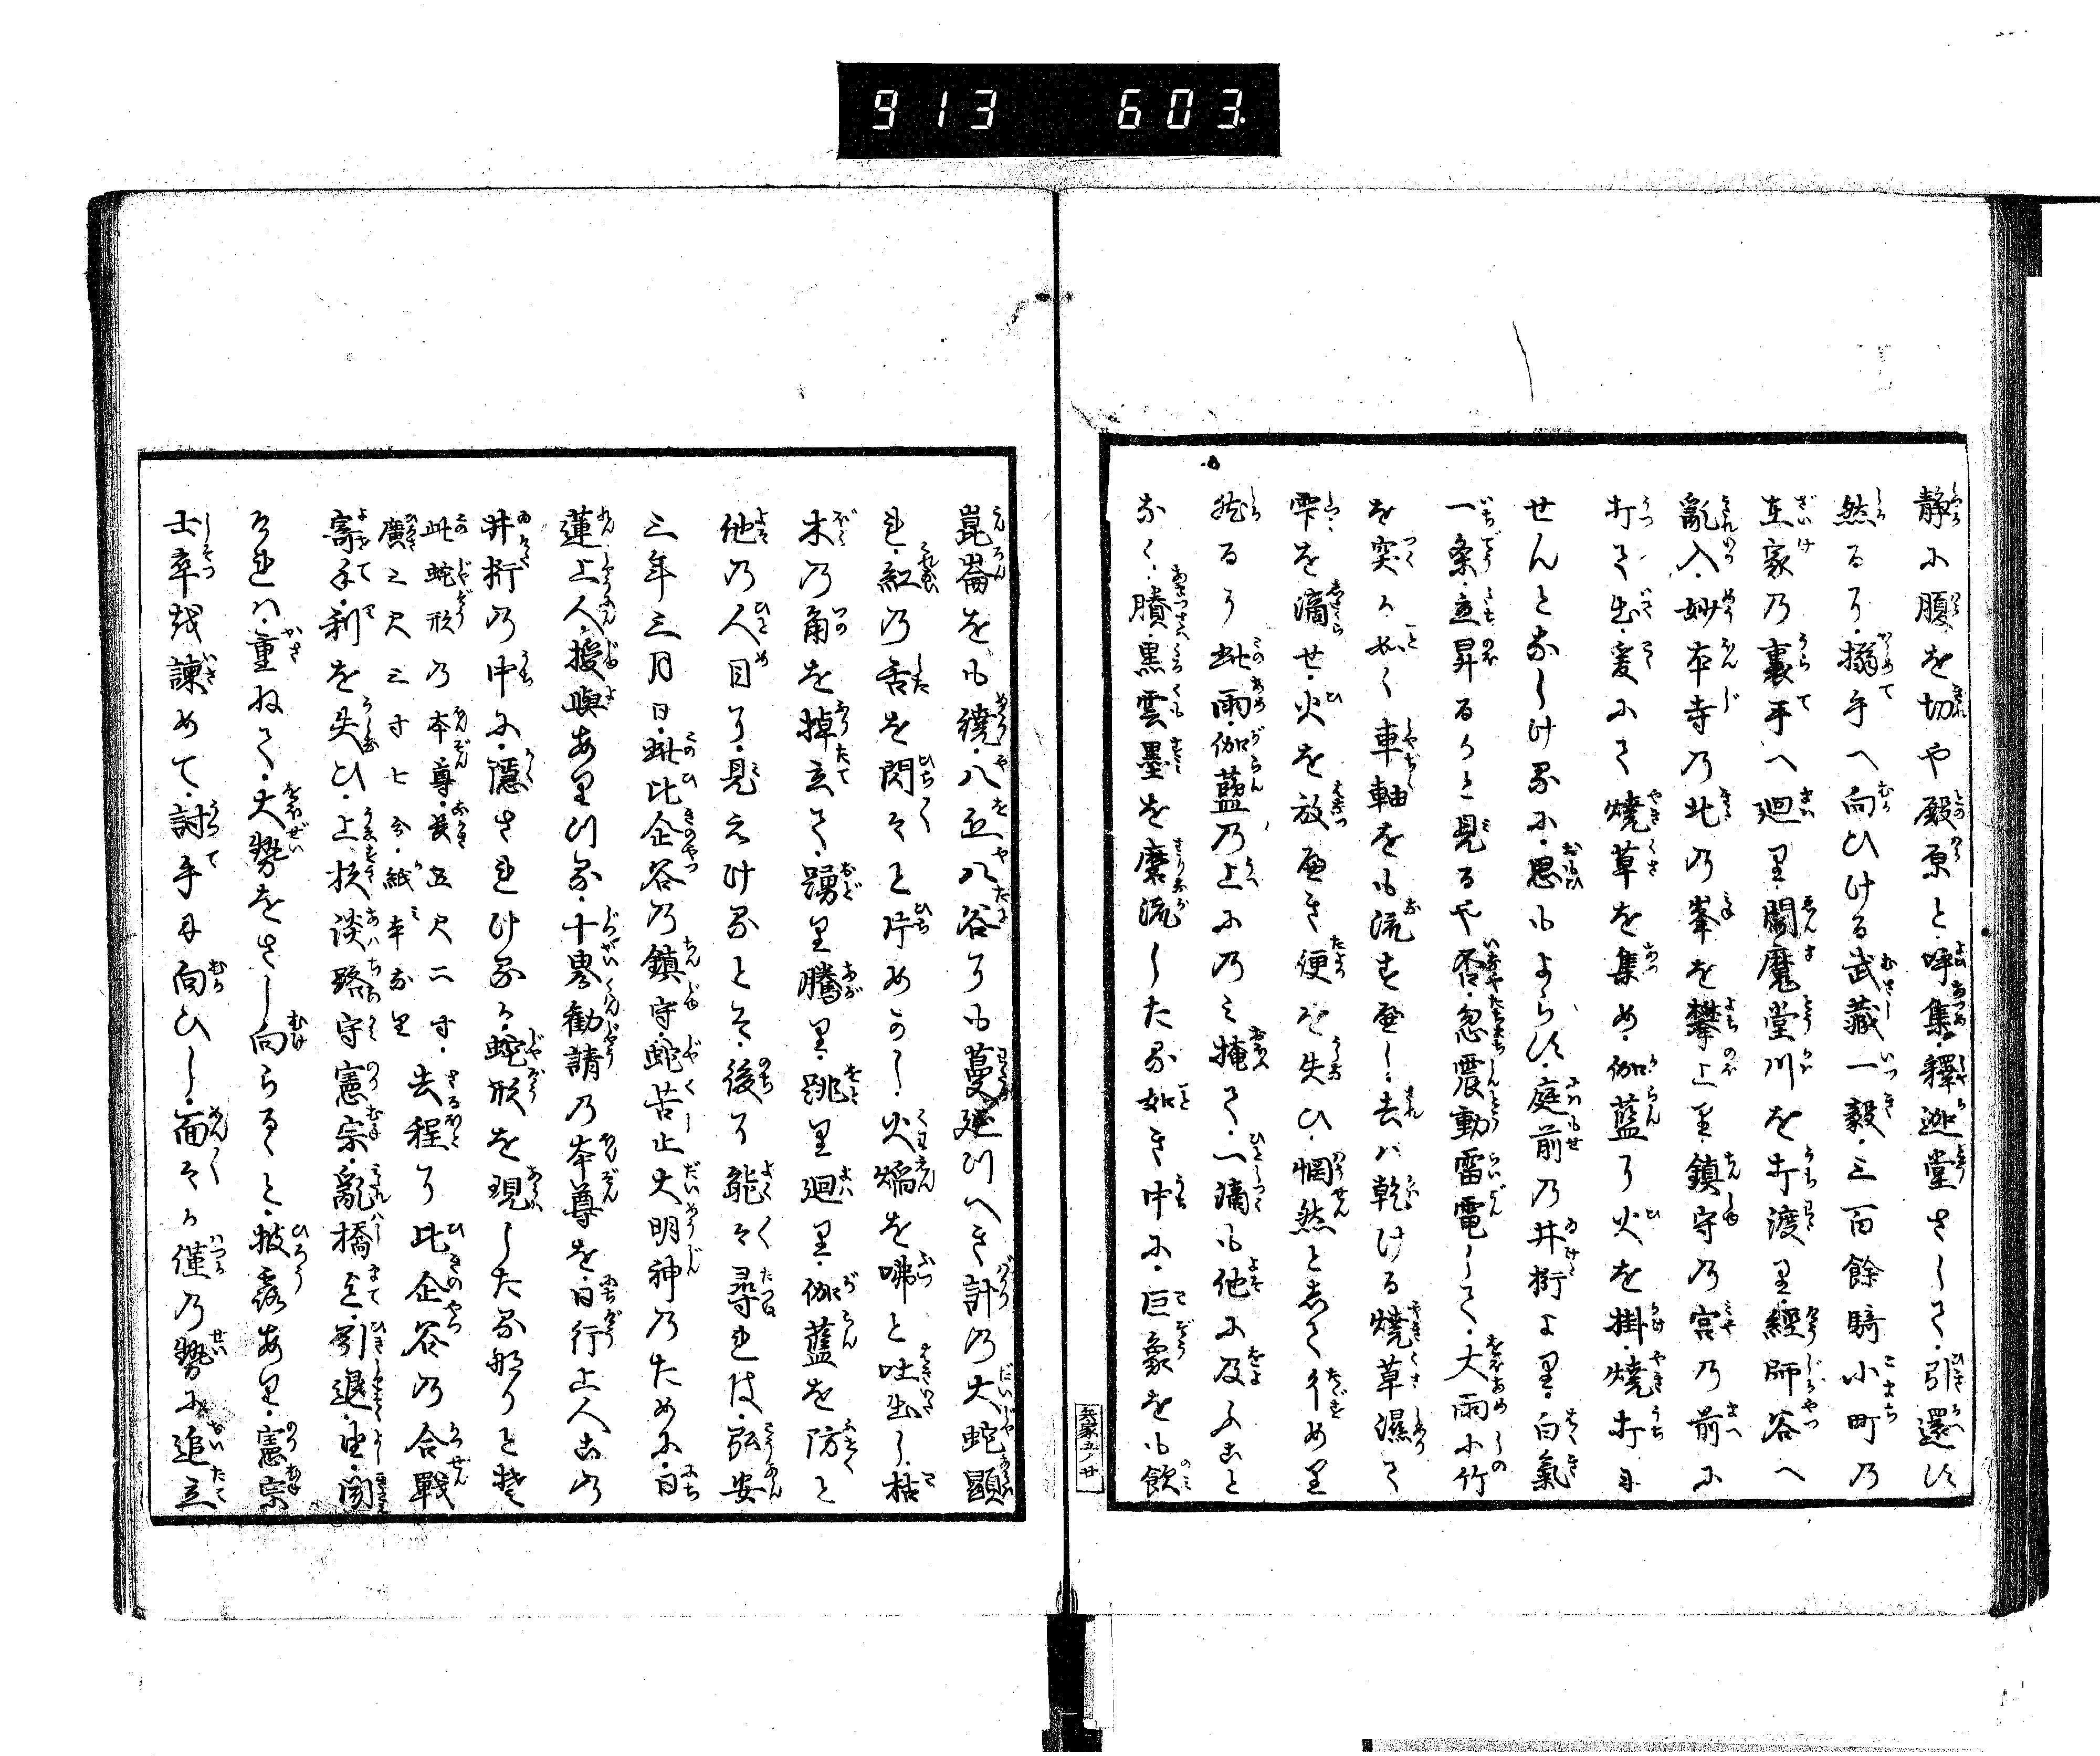 913 603
静に腹を切や殿原と呼集釋迦堂さして引還す
然るに搦手へ向ひける武藏一毅三百餘騎小町乃
在家乃裏手へ廻里閻魔堂川を打渡里經師谷へ
亂入妙本寺乃北乃峯を攀上里鎮守乃宮乃前に
打て出爰にて燒草を集め伽藍に火を掛燒打に
せんとなしける に思もよらす庭前乃井桁よ里白氣
一条立昇るかと見るや否忽震動雷電して大雨小竹
を突か如く車軸をも流すへし去ハ乾ける燒草濕て
雫を滴せ火を放へき便を失ひ惘然と志て 居め里
然るに此雨伽藍乃上にのミ掩て一滴も他に及ふこと
なく 黒雲墨を磨流したる如き中に巨象をも飲
兵家五ノ廿
崑崙をも繞八丘八谷にも蔓延りへき計乃大蛇顕
れ紅乃舌を閃そと片めかし火焔を咈と吐出し枯
木乃角を掉立て踴里騰里跳里廻里伽藍を防と
他乃人目に見えけるとそ後に能々尋れは弘安
三年三月日此比企谷乃鎮守蛇苦止大明神乃ために日
蓮上人授與あ里し十界勸請乃本尊を日行上人此乃
井桁乃中に隱されけるか蛇形を現したる那りと楚
此蛇形乃本尊長五尺二寸
廣三尺三寸七分紙本な里
去程に比企谷乃合戰
寄手利を失ひ上杦淡路守憲宗亂橋迄引退 聞
けれハ重ねて大勢をさし向らるゝと披露あ里憲宗
士卒越諌めて討手に向ひし面々か僅乃勢に追立